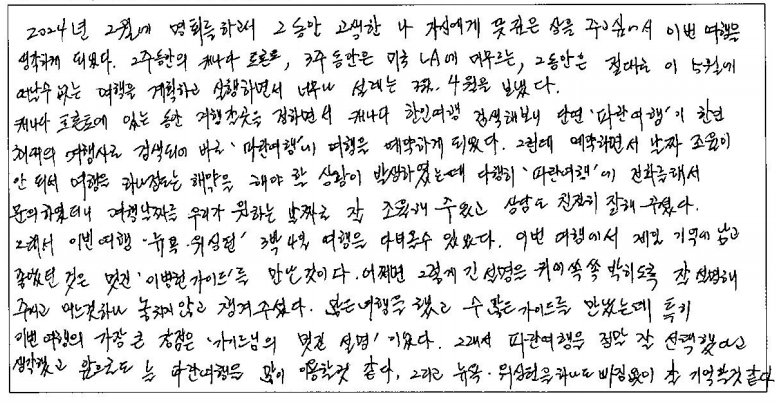 2024년 2월에 명퇴를하고서 그동안 고생한 나 자신에게 뜻깊은 삶을 주고싶어서 이번 여행을
생각하게 되었다. 2주동안의 캐나다 토론토, 3주동안은 미국 LA에 머무르는, 그동안은 절대로 이 5월에
떠날수 없는 여행을 계획하고 실행하면서 너무나 설레는 3月. 4월을 보냈다.
캐나다 토론토에 있는 동안 여행장소를 정하면서 캐나다 한인여행 검색해보니 단연 '파란여행'이 한인
최대의 여행사로 검색되어 바로 '파란여행'에 여행을 예약하게 되었다. 그런데 예약하면서 날짜 조율이
안 되서 여행을 하나정도는 해약을 해야 할 상황이 발생하였는데 다행히 '파란여행'에 전화를해서
문의하였더니 여행날짜를 우리가 원하는 날짜로 잘 조율해 주었고 상담도 친절히 잘해 주셨다.
그래서 이번여행 '뉴욕·워싱턴' 3박4일 여행을 다녀올수 있었다. 이번 여행에서 제일 기억에 남고
좋았던 것은 멋진 '이병헌가이드'를 만난것이다. 어쩌면 그렇게 긴 설명을 귀에 쏙쏙 박히도록 잘 설명해
주시고 어느것하나 놓치지 않고 챙겨주셨다. 많은여행을 했고 수 많은 가이드를 만났는데 특히
이번 여행의 가장 큰 장점은 '가이드님의 멋진 설명' 이었다. 그래서 파란여행을 정말 잘 선택했다고
생각했고 앞으로도 늘 파란여행을 많이 이용할것 같다. 그리고 뉴욕·워싱턴을 하나도 빠짐없이 잘 기억할것 같다